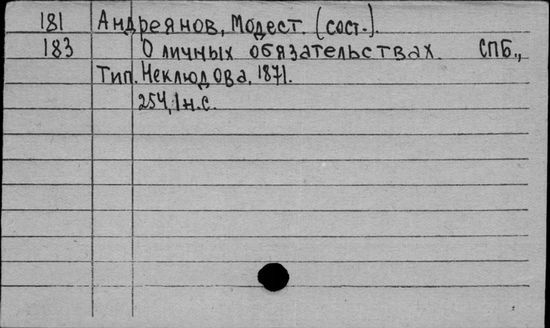 181 Андреянов, Модест. (сост.).
183 О личных обязательствах. СПБ.,
Тип. Неклюдова, 1871.
254, 1 н.с.